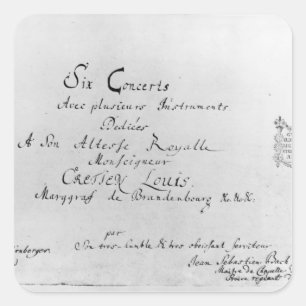 Six Concerts
Avec plusieurs Instruments
Dediées
A Son Altesse Royalle
Monseigneur
CRETIEN LOUIS.
Marggraf de Brandenbourg &c. &c. &c.
par
Son tres-humble & tres obeissant serviteur
Jean Sebastien Bach
Maitre de Chapelle